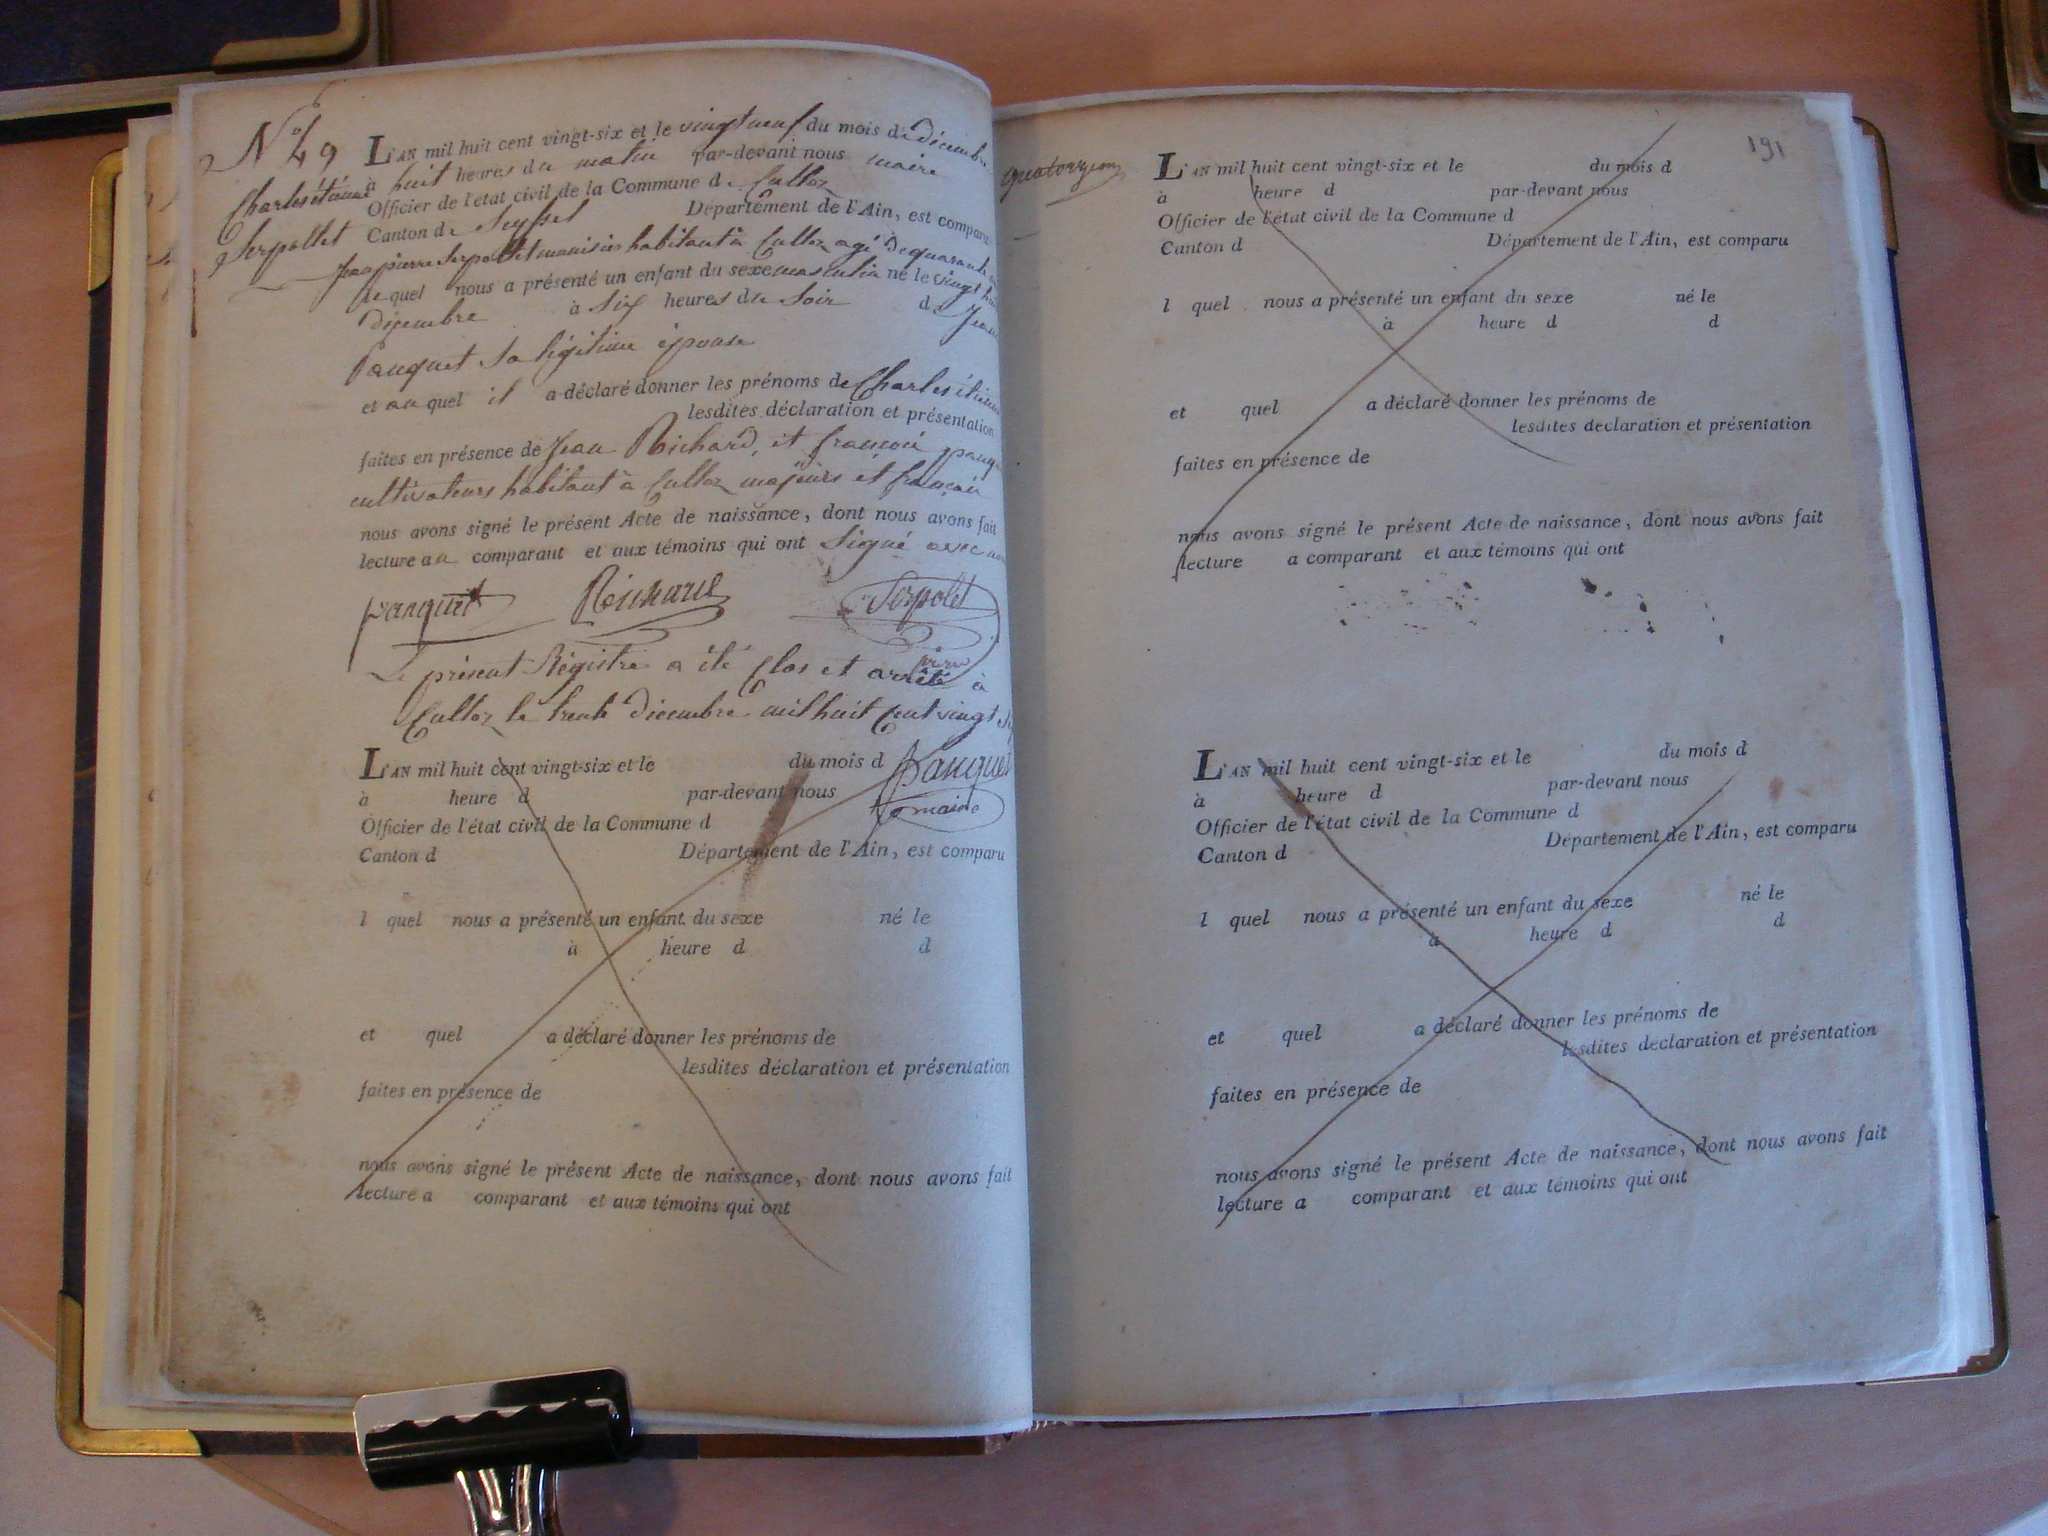 N° 49
Charles étienne
Serpollet
L'AN mil huit cent vingt-six et le vingt neuf du mois de décembre
à huit heures du matin par-devant nous maire
Officier de l'état civil de la Commune de Culloz
Canton de Seyssel Département de l'Ain, est comparu
Jean pierre Serpollet menuisier habitant à Culloz agé de quarante
lequel nous a présenté un enfant du sexe masculin né le vingt huit
décembre à six heures du soir de Jeanne
Pauquet sa légitime épouse
et au quel il a déclaré donner les prénoms de Charles étienne
lesdites déclaration et présentation
faites en présence de Jean Richard, et françois pauquet
cultivateurs habitant à Culloz majeurs et françois
nous avons signé le présent Acte de naissance, dont nous avons fait
lecture au comparant et aux témoins qui ont signé avec nous
pauquet Richard Serpolet
père
Le présent Régistre a été Clos et arrêté à
Culloz le trente décembre mil huit Cent vingt six
Pauquet
maire
L'AN mil huit cent vingt-six et le du mois d
à heure d par-devant nous
Officier de l'état civil de la Commune d
Canton d Département de l'Ain, est comparu
l quel nous a présenté un enfant du sexe né le
à heure d d
et quel a déclaré donner les prénoms de
lesdites déclaration et présentation
faites en présence de
nous avons signé le présent Acte de naissance, dont nous avons fait
lecture a comparant et aux témoins qui ont
191
L'AN mil huit cent vingt-six et le du mois d
à heure d par-devant nous
Officier de l'état civil de la Commune d
Canton d Département de l'Ain, est comparu
l quel nous a présenté un enfant du sexe né le
à heure d d
et quel a déclaré donner les prénoms de
lesdites declaration et présentation
faites en présence de
nous avons signé le présent Acte de naissance, dont nous avons fait
lecture a comparant et aux témoins qui ont
L'AN mil huit cent vingt-six et le du mois d
à heure d par-devant nous
Officier de l'état civil de la Commune d
Canton d Département de l'Ain, est comparu
l quel nous a présenté un enfant du sexe né le
à heure d d
et quel a déclaré donner les prénoms de
lesdites declaration et présentation
faites en présence de
nous avons signé le présent Acte de naissance, dont nous avons fait
lecture a comparant et aux témoins qui ont